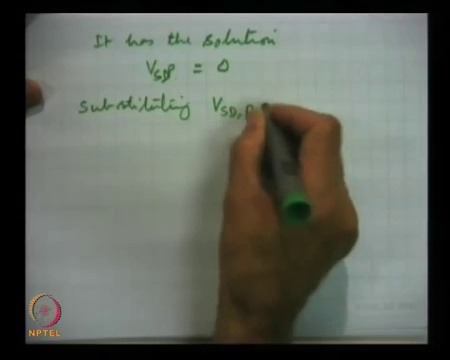 It has the solution
V_SD,p = 0
Substituting V_SD,p
NPTEL